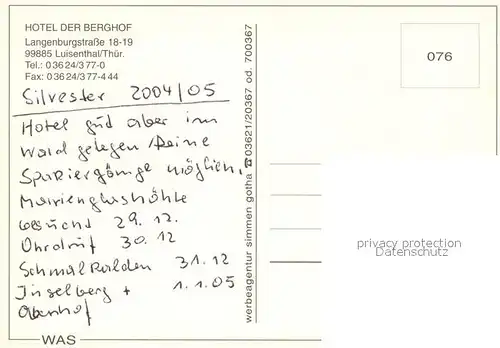 HOTEL DER BERGHOF
Langenburgstraße 18-19
99885 Luisenthal/Thür.
Tel.: 0 36 24/3 77-0
Fax: 0 36 24/3 77-4 44
Silvester 2004/05
Hotel gut aber im
Wald gelegen, keine
Spaziergänge möglich.
Marienglashöhle
besucht 29.12.
Ohrdruf 30.12
Schmalkalden 31.12
Inselberg + 1.1.05
Oberhof
WAS
werbeagentur simmen gotha ☎ 03621/20367 od. 700367
076
privacy protection
Datenschutz